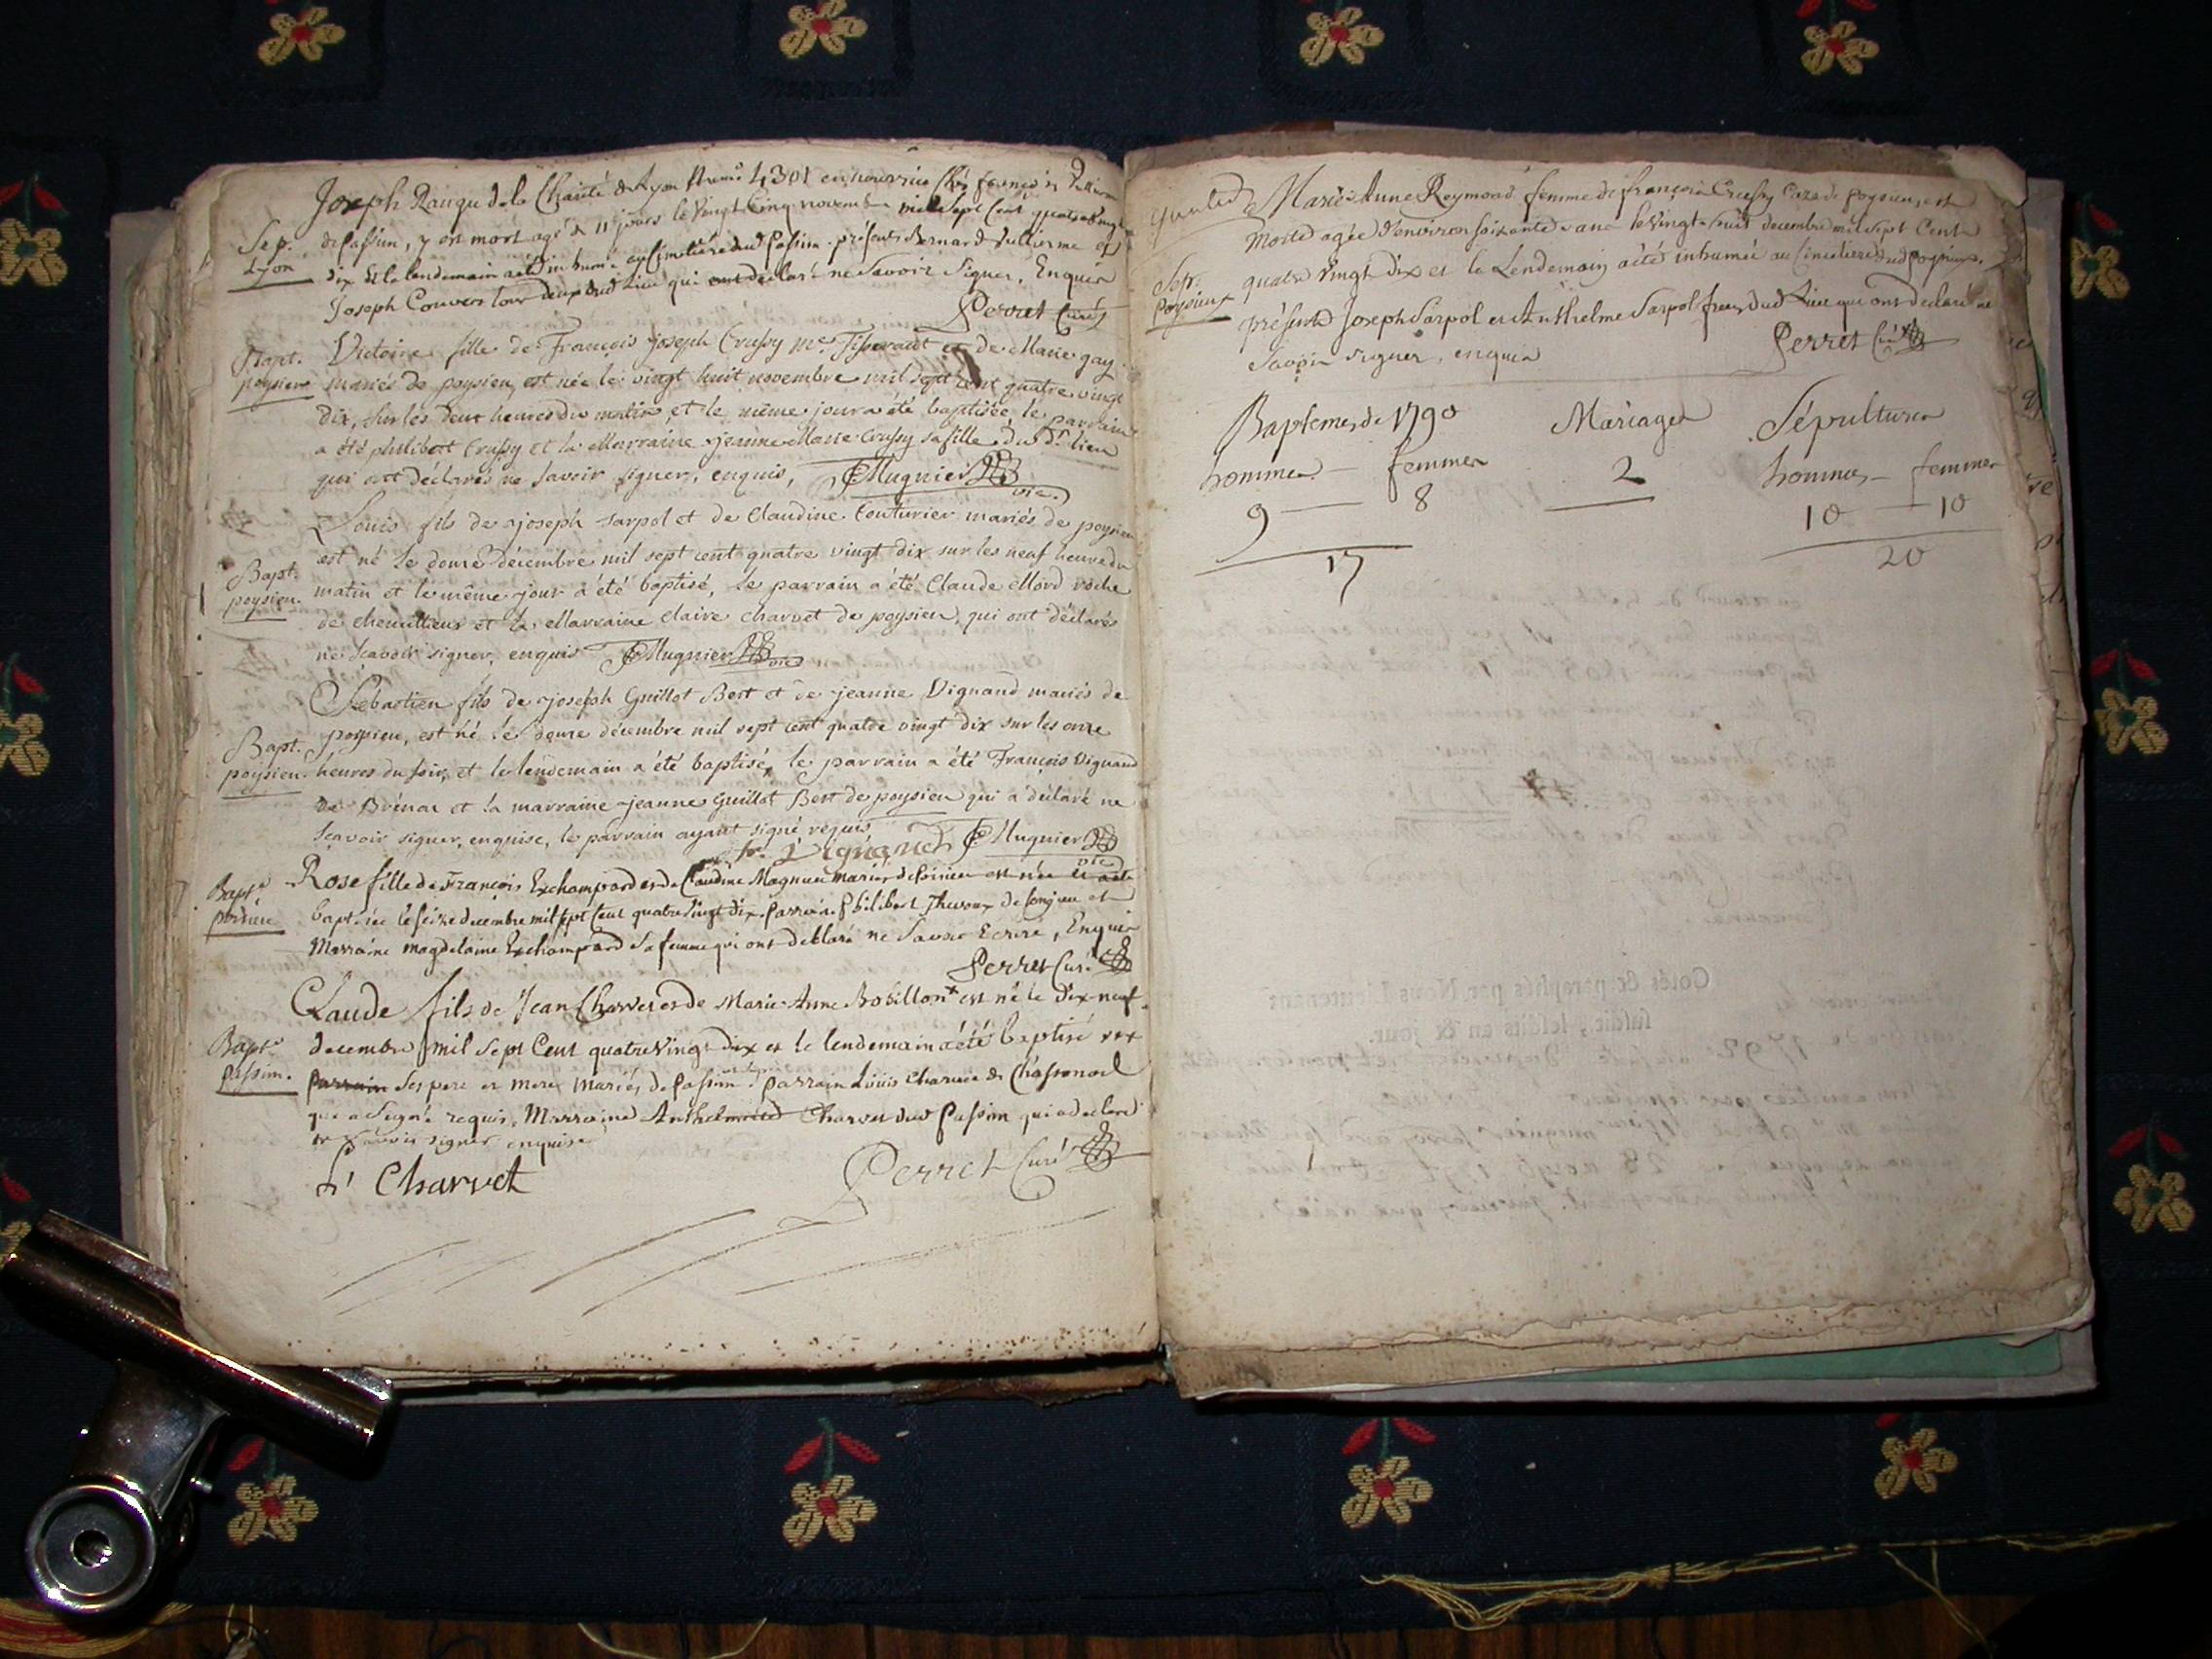 Joseph Raugu de la Charité de Lyon 4301 en nourrice chés françois
Sep. Lyon
de Passin, y est mort agé de 11 jours le vingt cinq novembre mille sept cent quatre vingt
dix et le lendemain a été inhumé au Cimetière dud Passin. présents Bernard Vullierme et
Joseph Convers tous deux dud Lieu qui ont déclaré ne Savoir Signer, Enquis
Perret Curé
Bapt. poysieu
Victoire fille de François joseph Crussy me. Tisserand et de Marie gay
mariés de poysieu, est née le vingt huit novembre mil sept cent quatre vingt
dix, sur les deux heures du matin, et le même jour a été baptisée le parrain
a été philibert Crussy et la Marraine jeanne Marie Crussy sa fille du dt. lieu
qui ont déclarés ne savoir signer, enquis, Mugnier vic.
Louis fils de joseph sarpol et de Claudine Couturier mariés de poysieu
est né le douze décembre mil sept cent quatre vingt dix sur les neuf heures du
Bapt. poysieu.
matin et le même jour a été baptisé, le parrain a été Claude Mord roche
de cheuilleur et la Marraine claire charvet de poysieu, qui ont déclarés
ne sçavoir signer, enquis Mugnier vic
Sébastien fils de joseph Guillot Bert et de jeanne Vignand mariés de
poysieu, est né le douze décembre mil sept cent quatre vingt dix sur les onze
Bapt. poysieu
heures du soir, et le lendemain a été baptisé, le parrain a été François Vignand
de Brénaz et la marraine jeanne Guillot Bert de poysieu qui a déclaré ne
sçavoir signer, enquise, le parrain ayant signé requis
fr. Vignand Mugnier vic
Rose fille de François Exchampard et de Claudine Magnin mariés de Poisieu est née et a été
Bapt. poisieu
baptisée le seize decembre mil sept Cent quatre vingt dix. Parrain Philibert Thevoux de Sonjeu et
Marraine magdelaine Exchampard sa femme qui ont déclaré ne Savoir Ecrire, Enquis
Perret Curé
Claude fils de Jean Charvet et de Marie Anne Bobillon + est né le dix neuf
Bapt. Passin.
decembre mil Sept Cent quatre Vingt dix et le lendemain a été baptisé
Parrain Ses pere et mere mariés, de Passin. Parrain Louis Charvet de Chassonod
qui a Signé requis, Marraine Anthelmette Charvet dud Passin qui a déclaré
ne Savoir signer enquise
Charvet Perret Curé
Marie Anne Reymond femme de françois Crussy Caze de Poysieu, est
morte agée d'environ soixante ans le vingt huit decembre mil Sept Cent
Sep. Poysieux
quatre Vingt dix et le Lendemain a été inhumée au Cimetiere dud poysieu.
présents Joseph Sarpol et Anthelme Sarpol freres dud Lieu qui ont declaré ne
Savoir signer, enquis Perret Curé
Baptemes de 1790 Mariages Sépultures
hommes — femmes 2 hommes — femmes
9 — 8 10 — 10
17 20